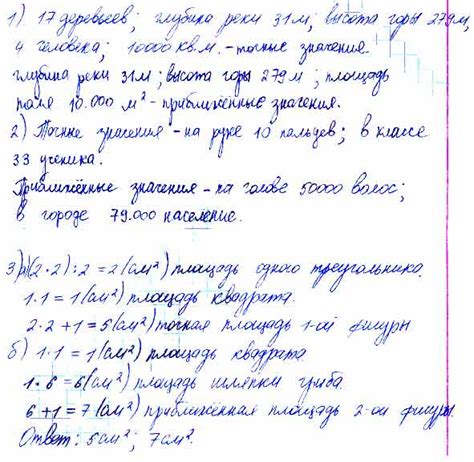 1) 17 деревьев; глубина реки 31м, высота горы 279м,
4 человека; 10000 кв.м. - точные значения
глубина реки 31м; высота горы 279м; площадь
поля 10.000 м² - приближённые значения.
2) Точные значения - на руке 10 пальцев; в классе
33 ученика.
Приближённые значения - на голове 50000 волос;
в городе 79.000 население.
3) а) (2·2):2=2(см²) площадь одного треугольника.
1·1=1(см²) площадь квадрата.
2·2+1=5(см²) точная площадь 1-ой фигуры
б) 1·1=1(см²) площадь квадрата
1·6=6(см²) площадь шляпки гриба
6+1=7(см²) приближённая площадь 2-ой фигуры.
Ответ: 5см²; 7см².